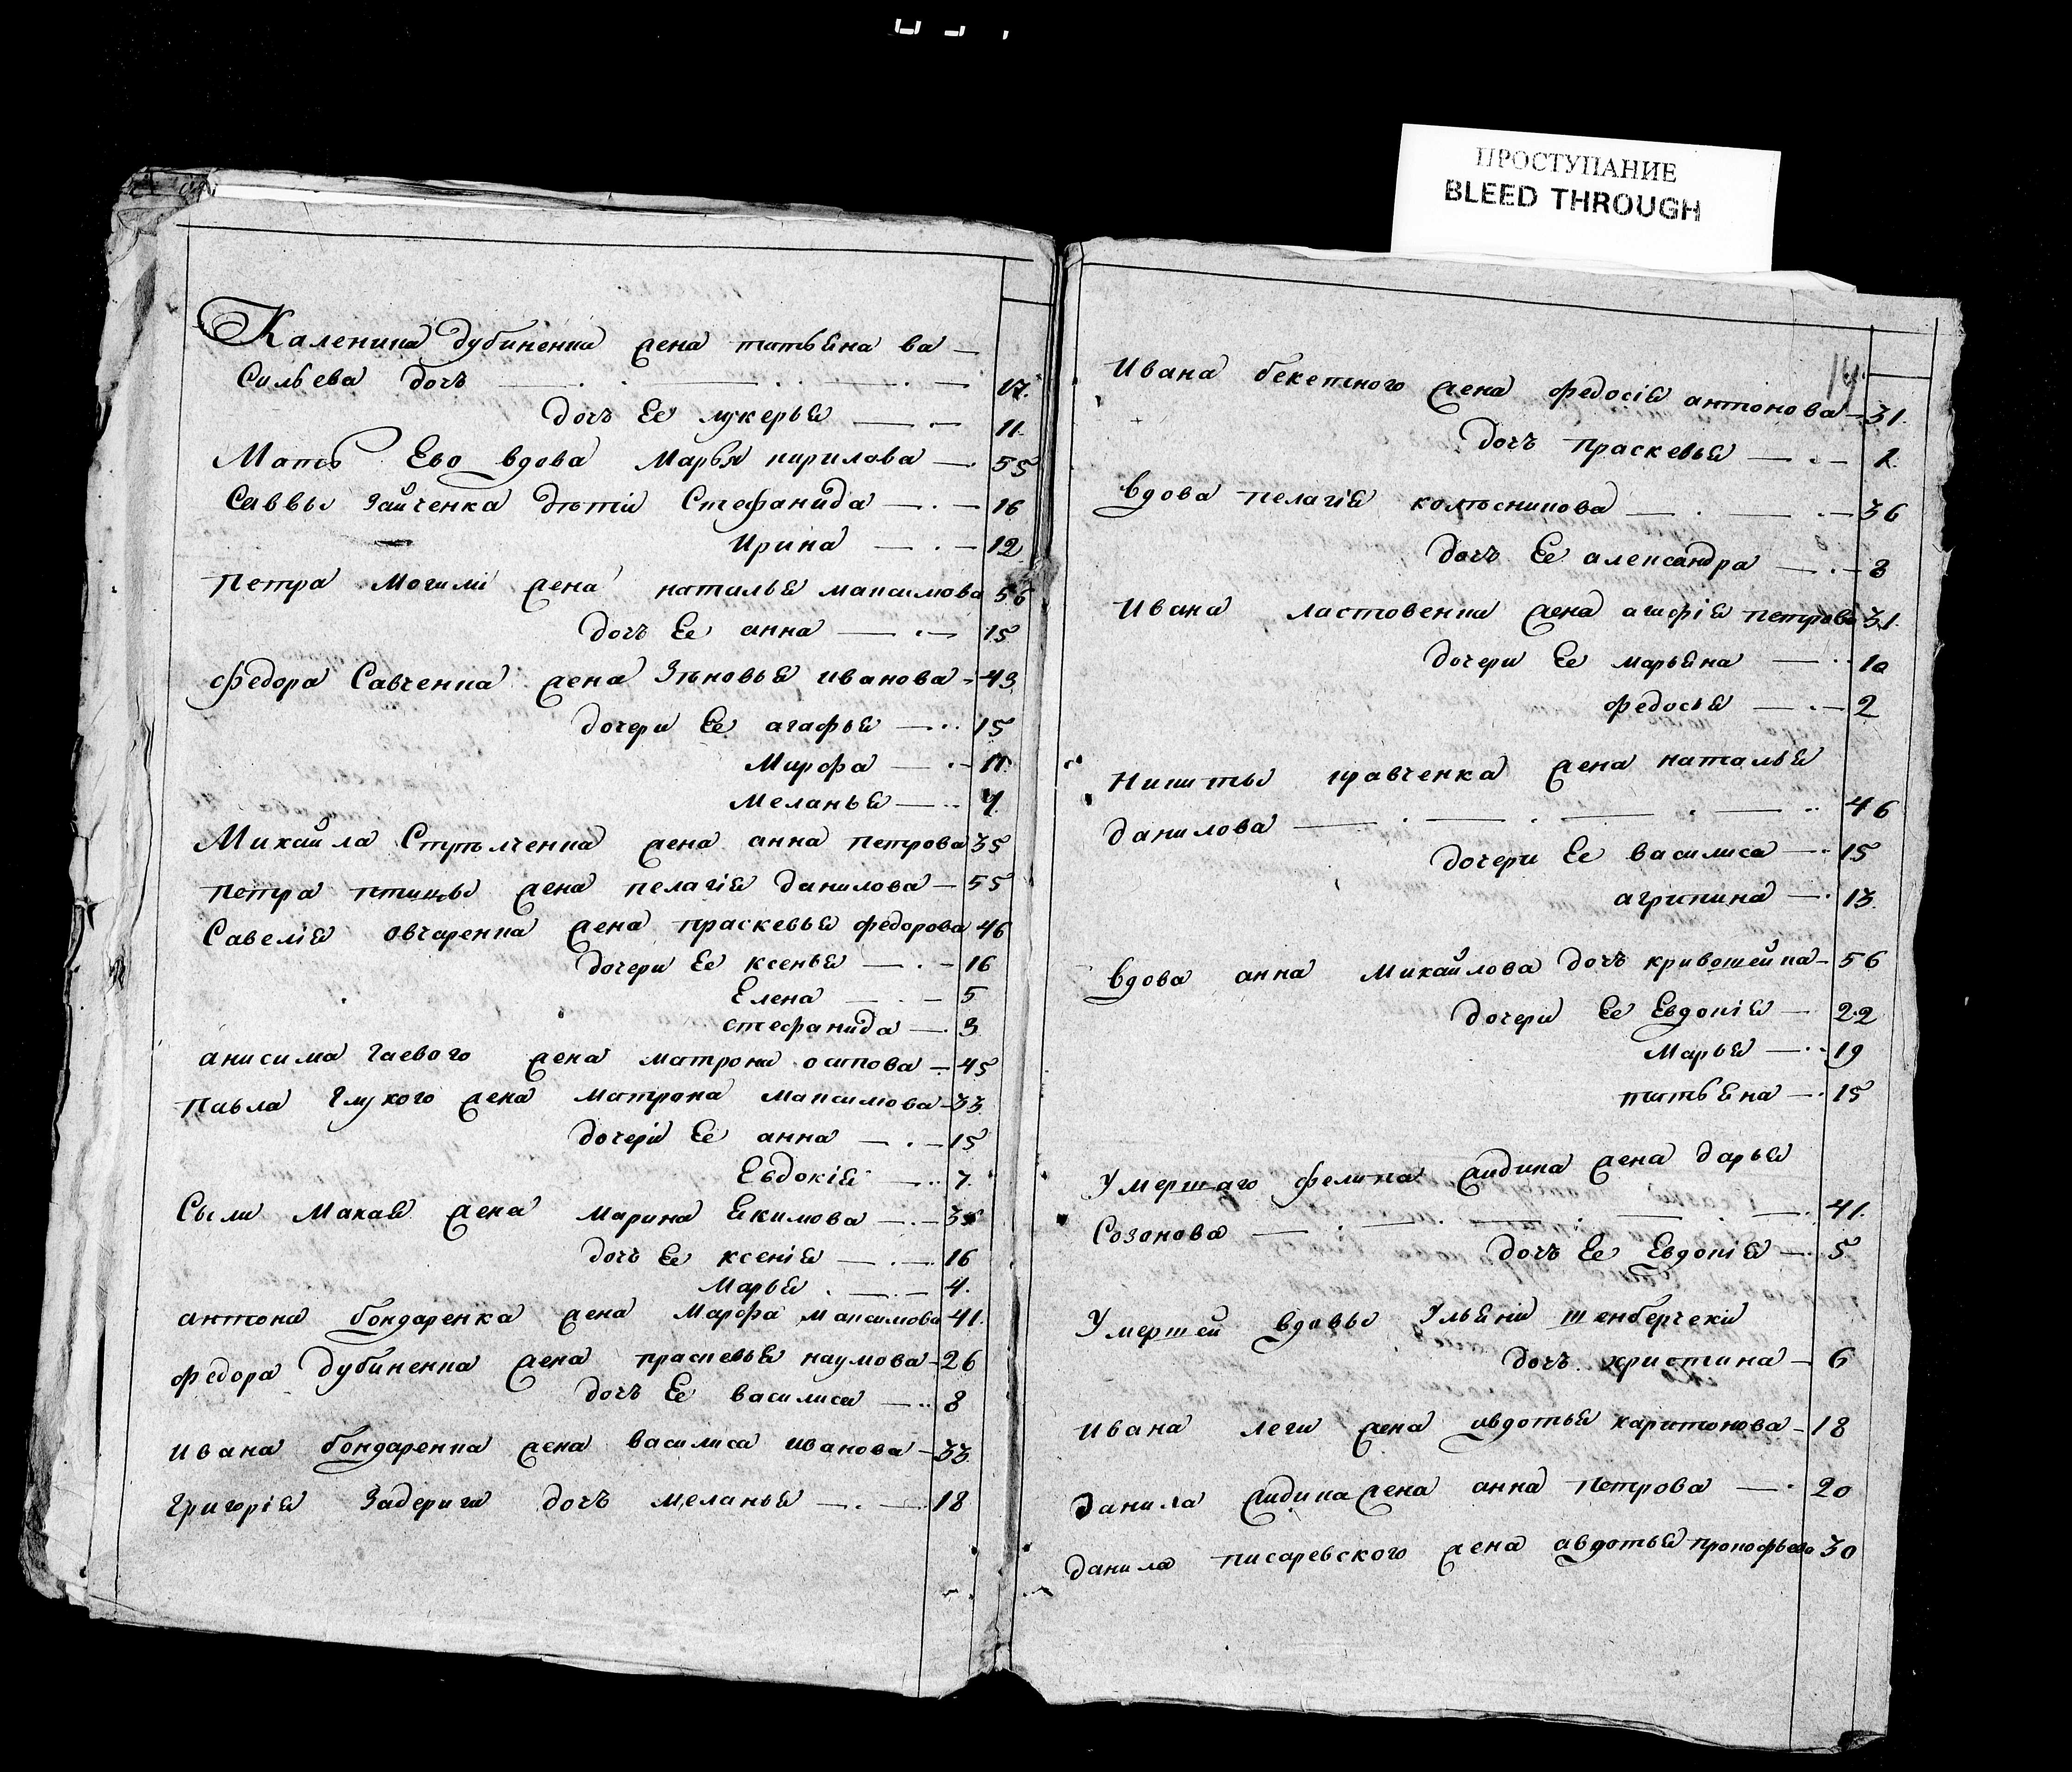 ПРОСТУПАНИЕ
BLEED THROUGH
Каленика дубиненка жена татьяна ва
сильева дочь
дочь Ее лукерья 11
Мать Ево вдова Марья кирилова 55
Саввы Зайченка дѣти Стефанида 16
Ирина 12
Петра Могили жена наталья максимова 56
дочь Ее анна 15
федора Савченка жена Зѣновья иванова 43
дочери Ее агафья 15
Марфа 11
Меланья
Михайла Стрѣлченка жена анна петрова 35
Петра птицы жена пелагія данилова 55
Савелія овчаренка жена праскевья федорова 46
дочери Ее ксенья 16
Елена 5
стефанида 3
анисима гаевого жена матрона осипова 45
Павла глухого жена матрона максимова 33
дочери Ее анна 15
Евдокія 7
Сылы Макая жена марина якимова
дочь Ее ксенія 16
Марья 4
антона бондаренка жена Марфа максимова 41
федора дубиненка жена праскевья наумова 26
дочь Ее василиса 8
ивана бондаренка жена василиса иванова 33
григорія Задерига дочь меланья 18
14
Ивана бекетного жена федосія антонова 31
дочь праскевья 1
вдова пелагія колѣсникова 36
дочь Ее александра 8
Ивана ластовенка жена агафія петрова 31
дочери Ее марьяна 10
федосья 2
Никиты кравченка жена наталья
данилова 46
дочери Ее василиса 15
агрипина 13
вдова анна михайлова дочь кривошейка 56
дочери Ее Евдокія 22
Марья 19
татьяна 15
Умершаго филипа жидика жена дарья
Созонова 41
дочь Ее Евдокія 5
Умершей вдовы Ульяни
дочь христина 6
ивана леги жена авдотья харитонова 18
данила жидика жена анна петрова 20
данила писаревского жена авдотья прокофьева 30